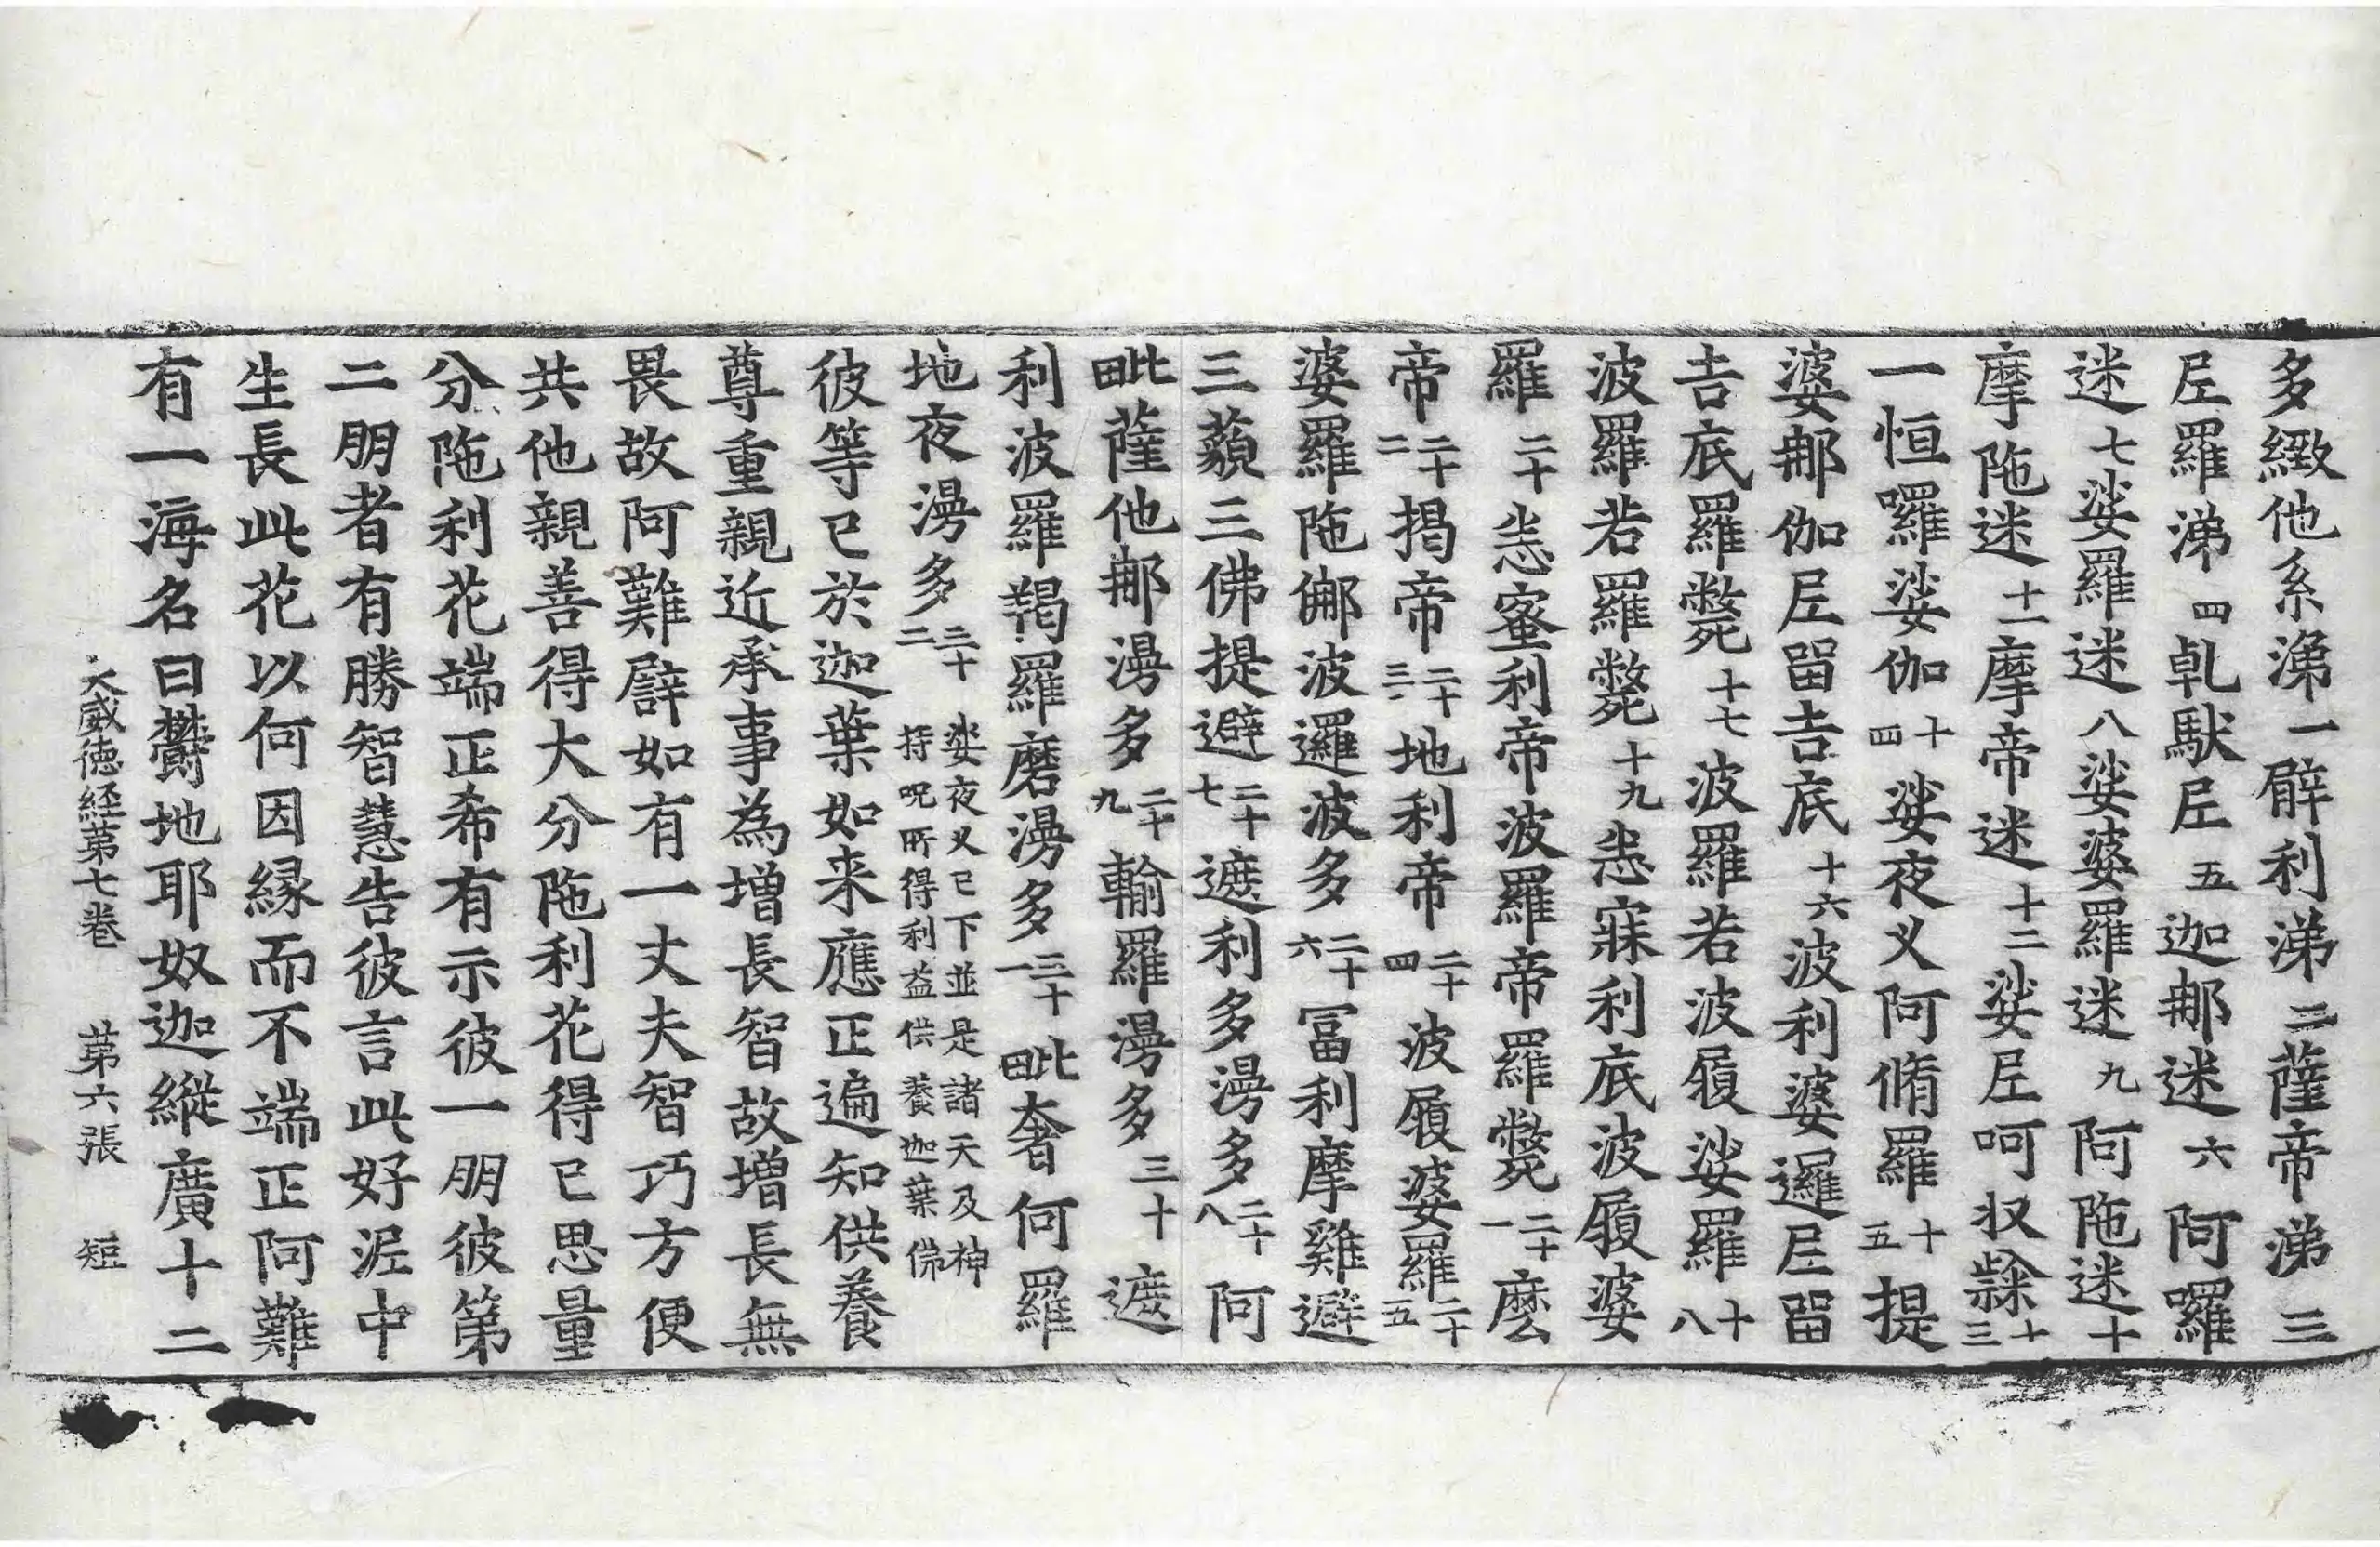 多緻他系涕一辟利涕二薩帝涕三
𡰱羅涕四乹馱𡰱五迦郍迷六阿囉
迷七娑羅迷八娑婆羅迷九阿陁迷十
摩陁迷十一摩帝迷十二娑𡰱呵㕝十三
一恒囉娑伽十四娑夜乂阿脩羅十五提
婆郍伽𡰱留吉底十六波利婆邏𡰱留
吉底羅斃十七波羅若波履娑羅十八
波羅若羅斃十九恙寐利底波履婆
羅二十恙蜜利帝波羅帝羅斃二十一麽
帝二十二揭帝二十三地利帝二十四波履婆羅二十五
婆羅陁𨚗波邏波多二十六冨利摩雞避
三藐三佛提避二十七遮利多湯多二十八阿
毗薩他郍湯多二十九輸羅湯多三十遮
利波羅羯羅磨湯多三十一毗奢何羅
地夜湯多三十二娑夜乂已下並是諸天及神持呪所得利益供養迦葉佛
彼等已於迦葉如来應正遍知供養
尊重親近承事為增長智故增長無
畏故阿難譬如有一丈夫智巧方便
共他親善得大分陁利花得已思量
分陁利花端正希有示彼一朋彼第
二朋者有勝智慧告彼言此好泥中
生長此花以何因緣而不端正阿難
有一海名曰欝地耶奴迦縱廣十二
大威德経第七卷 第六張 短